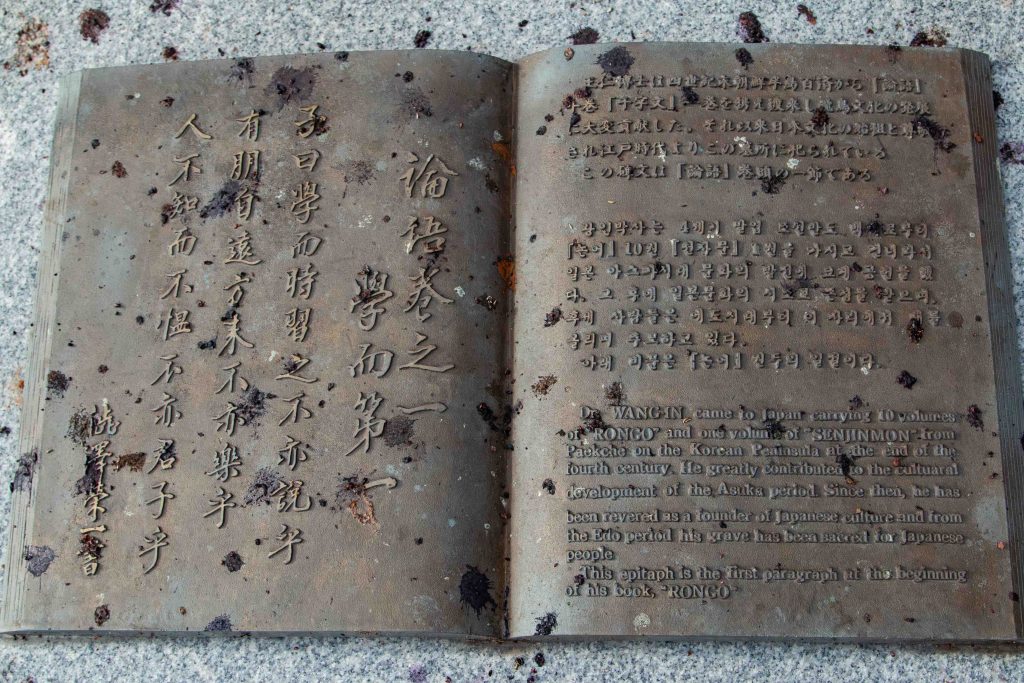 論語卷之一
學而第一
子曰學而時習之不亦説乎
有朋自遠方来不亦樂乎
人不知而不慍不亦君子乎
澁澤榮一書
王仁博士は四世紀末朝鮮半島百済から『論語』
十巻『千字文』一巻を携え渡来し飛鳥文化の発展
に大変貢献した。それ以来日本文化の始祖と
され江戸時代よりこの墓所に祀られている
この碑文は『論語』巻頭の一節である
왕인박사는 4세기 말엽 조선반도
『논어』 10권 『천자문』 가지고 건너와서
일본 문화의 발전에 크게 공헌을 했
다. 그 후에 일본문화의 시조로 존경을 받으며,
후세 사람들은 에도시대부터 이 자리에서
올리며 추모하고 있다.
비문은 『논어』 권두의
Dr. WANG-IN, came to Japan carrying 10 volumees
of "RONGO" and one volume of "SENJINMON" from
Paekche on the Korean Peninsula at the end of the
fourth century. He greatly contributed to the cultuaral
development of the Asuka period. Since then, he has
been revered as a founder of Japanese culture and from
the Edo period his grave has been sacred for Japanese
people
This epitaph is the first paragraph at the beginning
of his book, "RONGO"